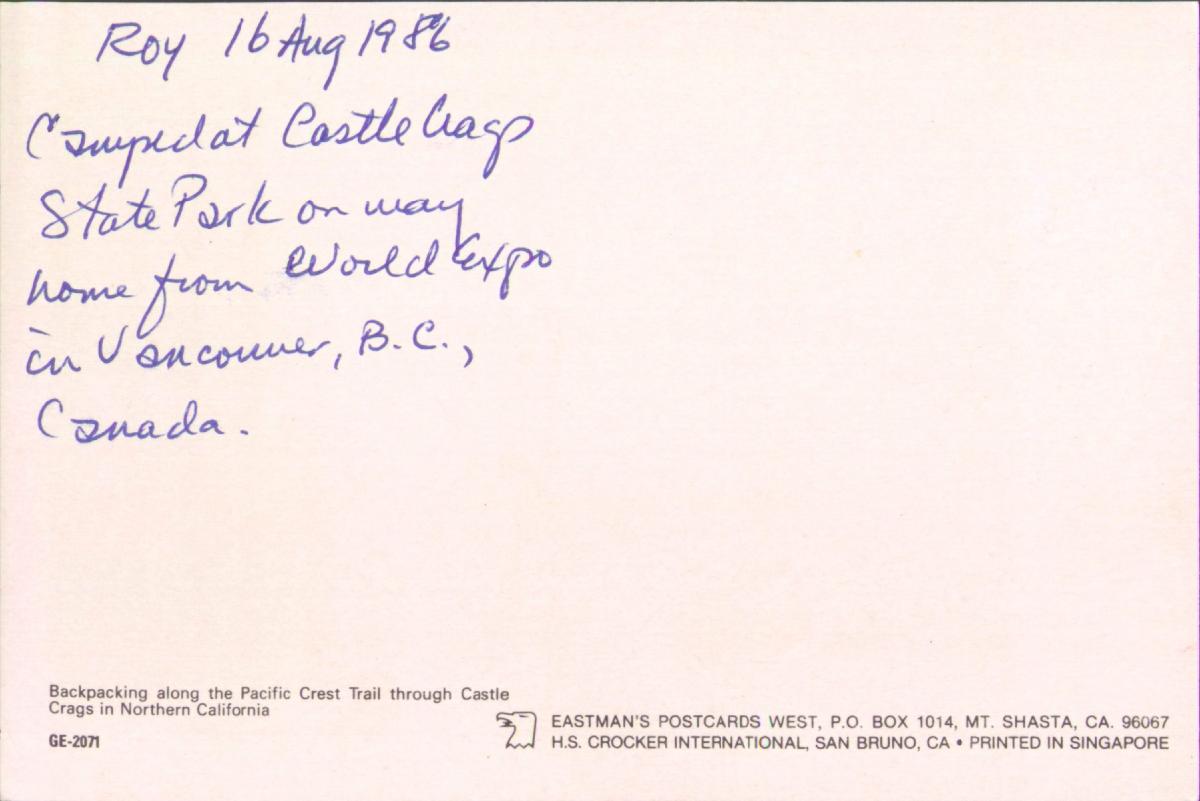 Roy 16 Aug 1986
Camped at Castle Crags
State Park on way
home from World Expo
in Vancouver, B.C.,
Canada.
Backpacking along the Pacific Crest Trail through Castle
Crags in Northern California
GE-2071
EASTMAN'S POSTCARDS WEST, P.O. BOX 1014, MT. SHASTA, CA. 96067
H.S. CROCKER INTERNATIONAL, SAN BRUNO, CA • PRINTED IN SINGAPORE